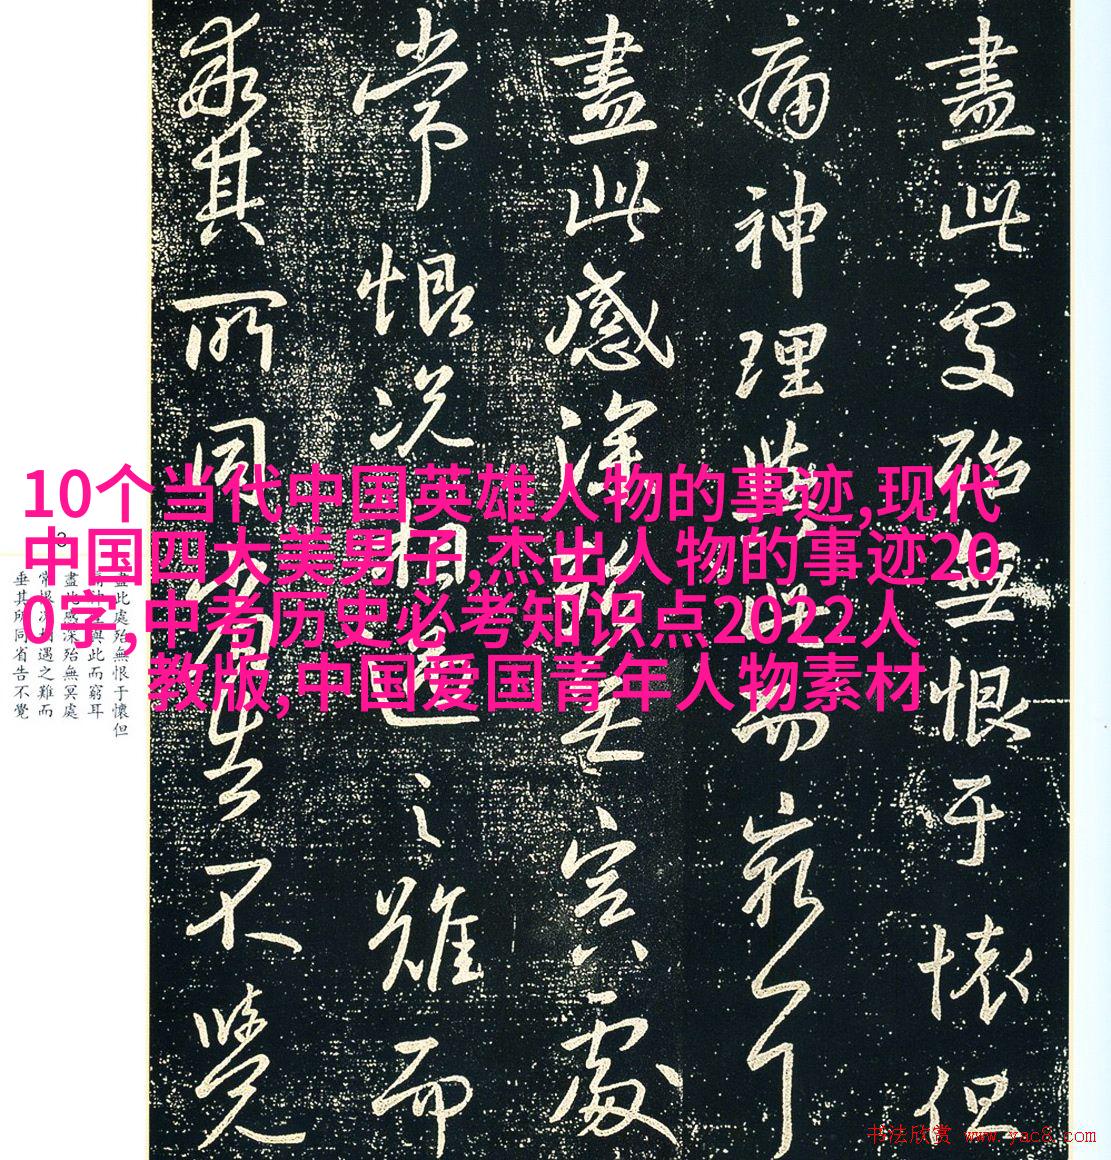 盡此處殆無恨于懷但
痛神理與此而窮耳
盡此感深殆無冥處
常恨況相遇之難而
垂其所同省告不覺
10个当代中国英雄人物的事迹,现代
中国四大美男子,杰出人物的事迹20
0字,中考历史必考知识点2022人
教版,中国爱国青年人物素材
3
盡此處殆無恨于懷但
與此而窮耳
盡此感深殆無冥處
常恨況相遇之難而
垂其所同省告不覺
书法欣赏 www.yac8.com